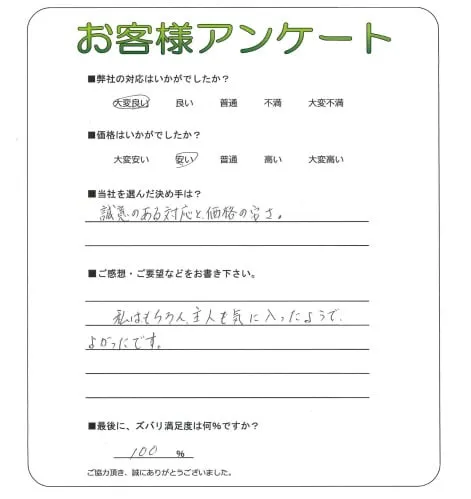 お客様アンケート
■弊社の対応はいかがでしたか？
大変良い 良い 普通 不満 大変不満
■価格はいかがでしたか？
大変安い 安い 普通 高い 大変高い
■当社を選んだ決め手は？
誠意のある対応と、価格の安さ。
■ご感想・ご要望などをお書き下さい。
私はもちろん、主人も気に入ったようで、
よかったです。
■最後に、ズバリ満足度は何%ですか？
100 %
ご協力頂き、誠にありがとうございました。